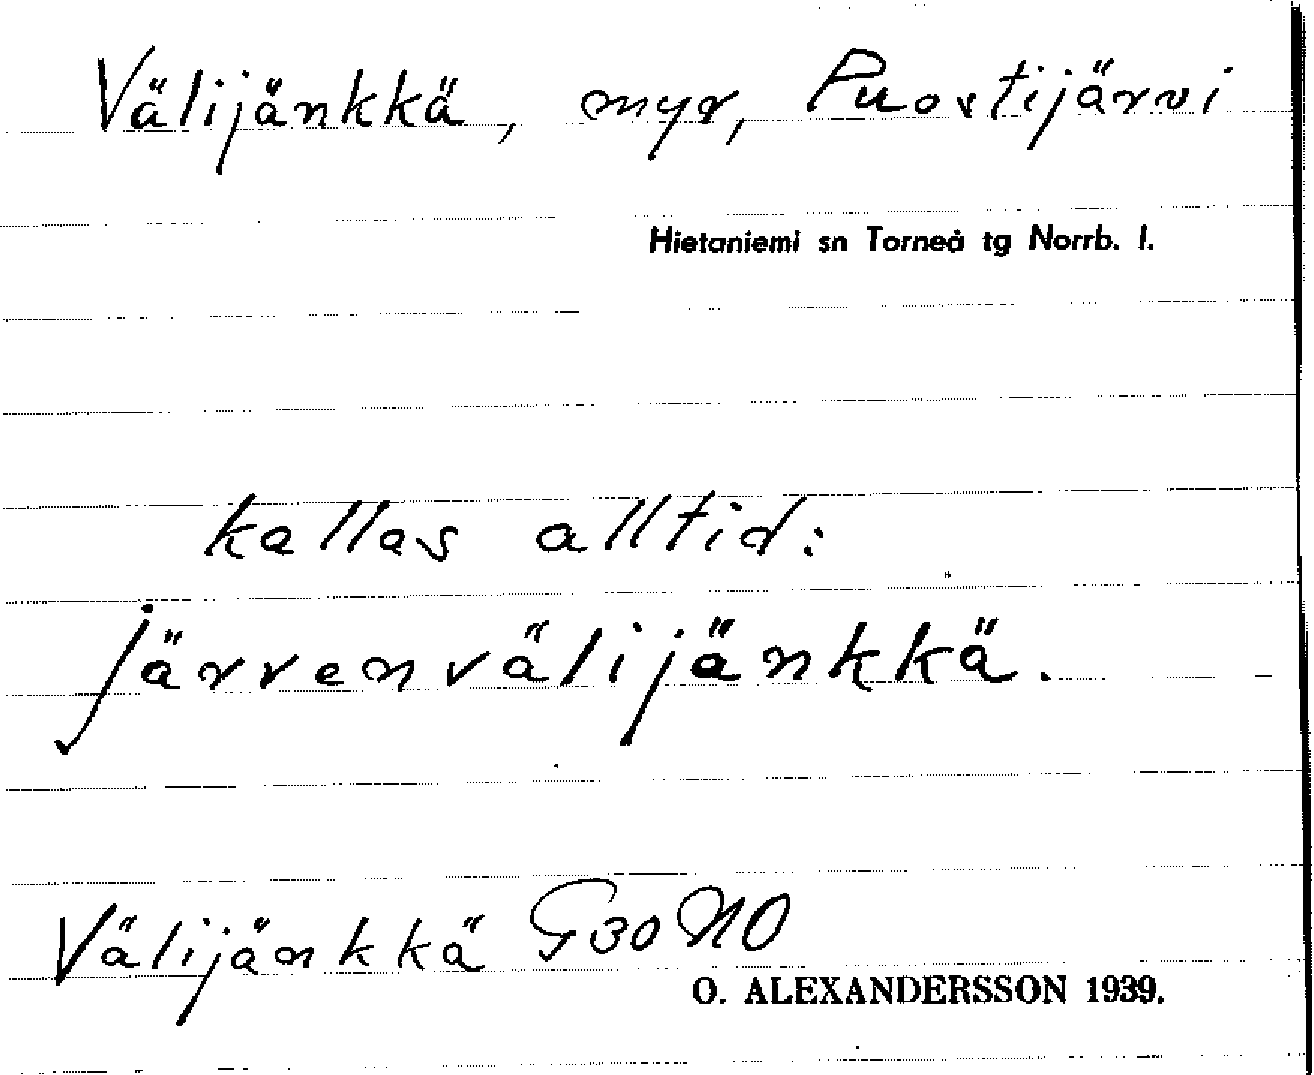 Välijänkkä, myr, Puostijärvi
Hietaniemi sn Torneå tg Norrb. l.
kallas alltid:
järvenvälijänkkä.
Välijänkkä G30 NO
O. ALEXANDERSSON 1939.